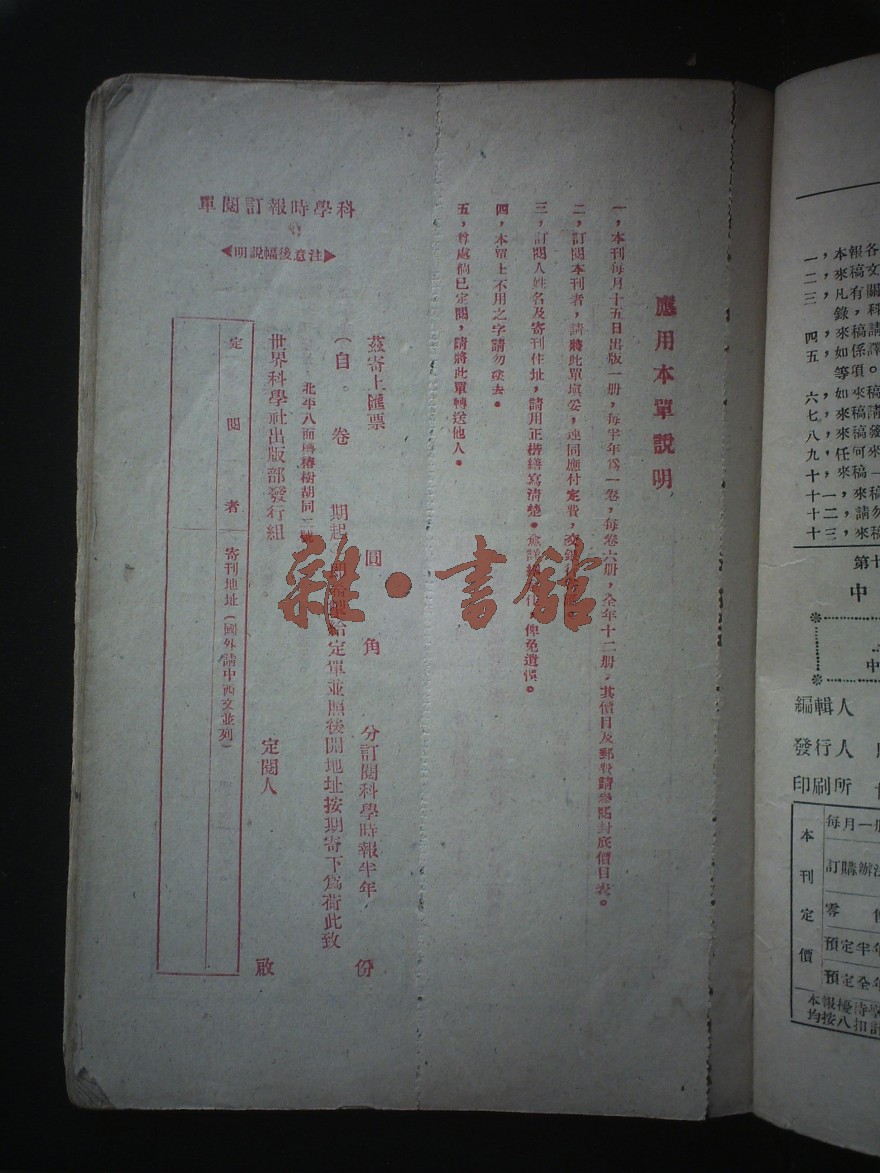 應用本單說明
一，本刊每月十五日出版一册，每半年爲一卷，每卷六册，全年十二册，其價目及郵費請參照封底價目表。
二，訂閱本刊者，請將此單填妥，連同應付定費，
三，訂閱人姓名及寄刊住址，請用正楷繕寫清楚。俾免遺悞。
四，本單上不用之字請勿
五，尊處倘已定閱，請將此單轉送他人。
科學時報訂閱單
▶注意後幅說明◀
茲寄上匯票 圓 角 分訂閱科學時報半年 份
（自 卷 期起 定單並照後開地址按期寄下爲荷此致
北平八面槽椿樹胡同二號
世界科學社出版部發行組
定閱人 啟
定閱者
寄刊地址（國外請中西文並列）
雜·書館
一，本報各
二，來稿文
三，凡有關
錄，
四，來稿請
五，如係譯
等項。
六，如來稿
七，來稿請
八，來稿
九，任何來
十，來稿一
十一，來稿
十二，請勿
十三，來稿
第十
中
中
編輯人
發行人
印刷所
本刊定價
每月一册
訂購辦法
零
預定半年
預定全年
本報優待學
均按八扣計